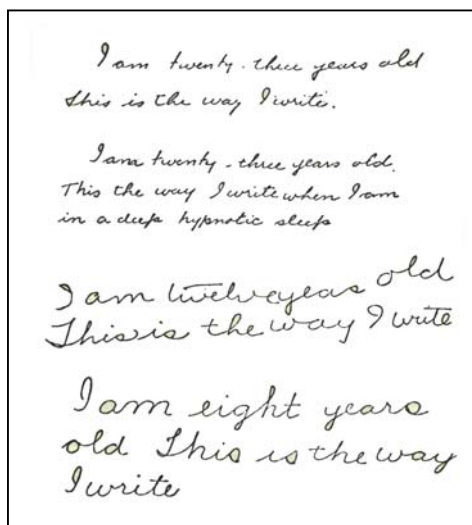 I am twenty-three years old
This is the way I write.
I am twenty-three years old.
This the way I write when I am
in a deep hypnotic sleep
I am twelve yeas old
This is the way I write
I am eight years
old This is the way
I write